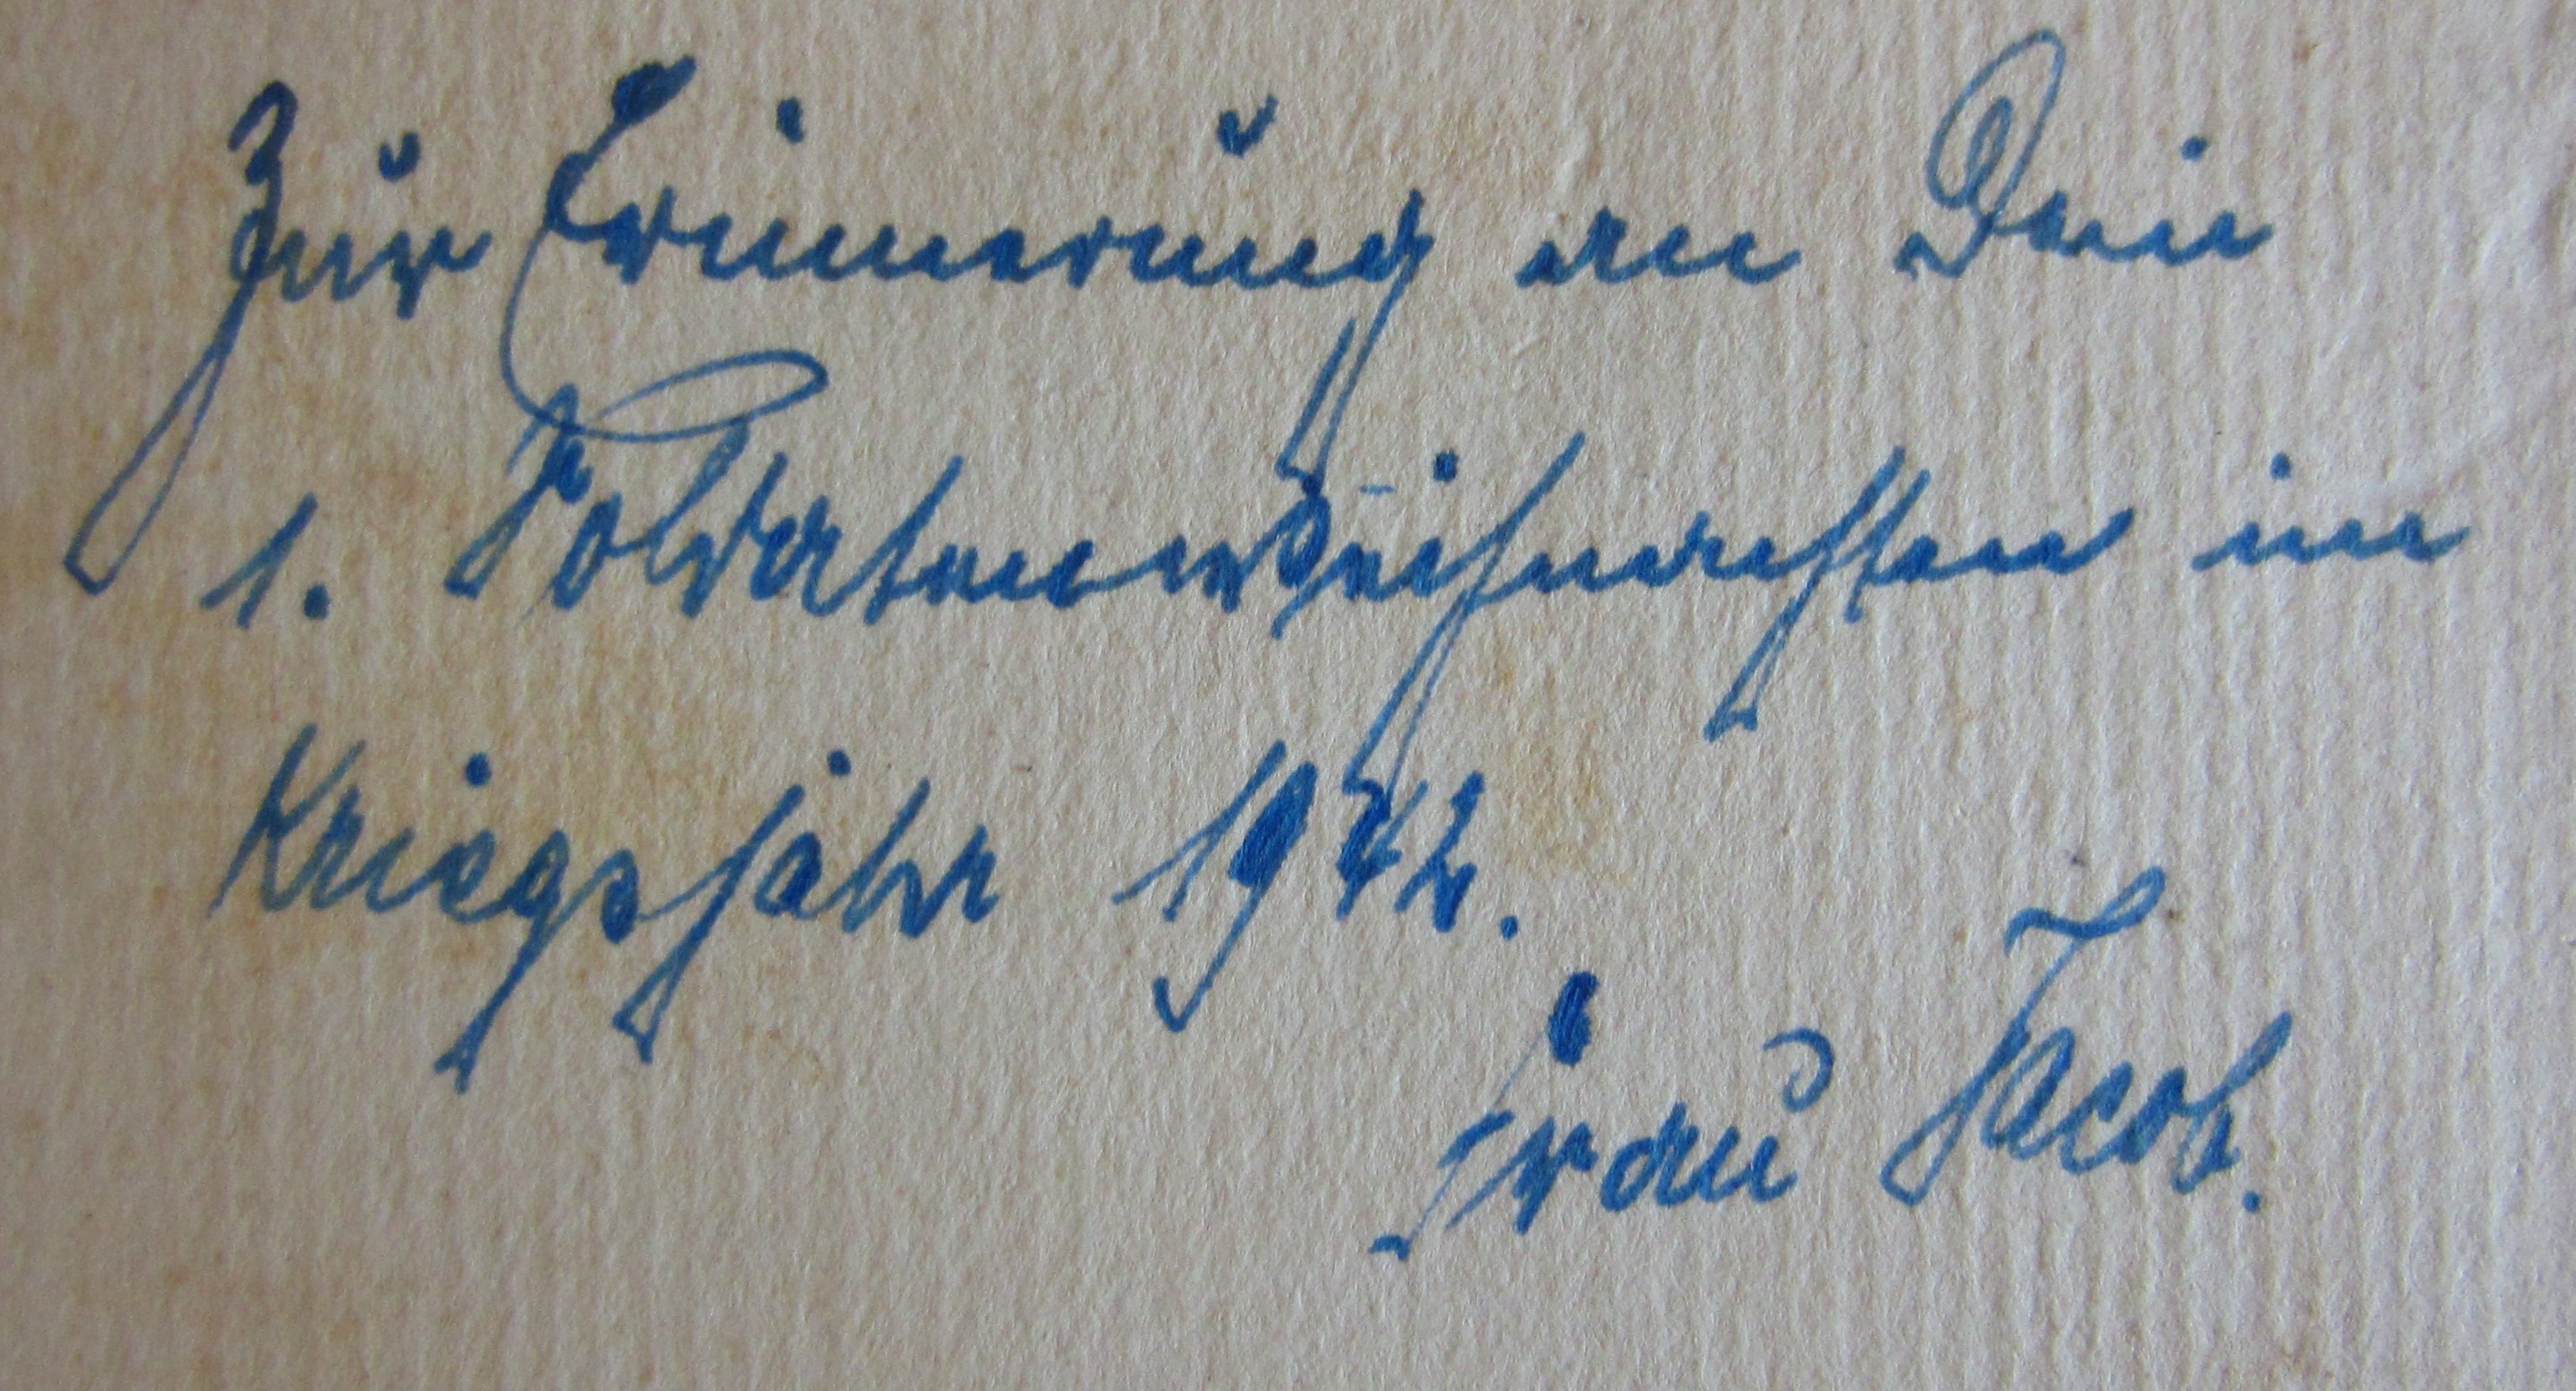 Zur Erinnerung an Dein
1. Soldatenweihnachten im
Kriegsjahr 1942.
Frau Jacob.